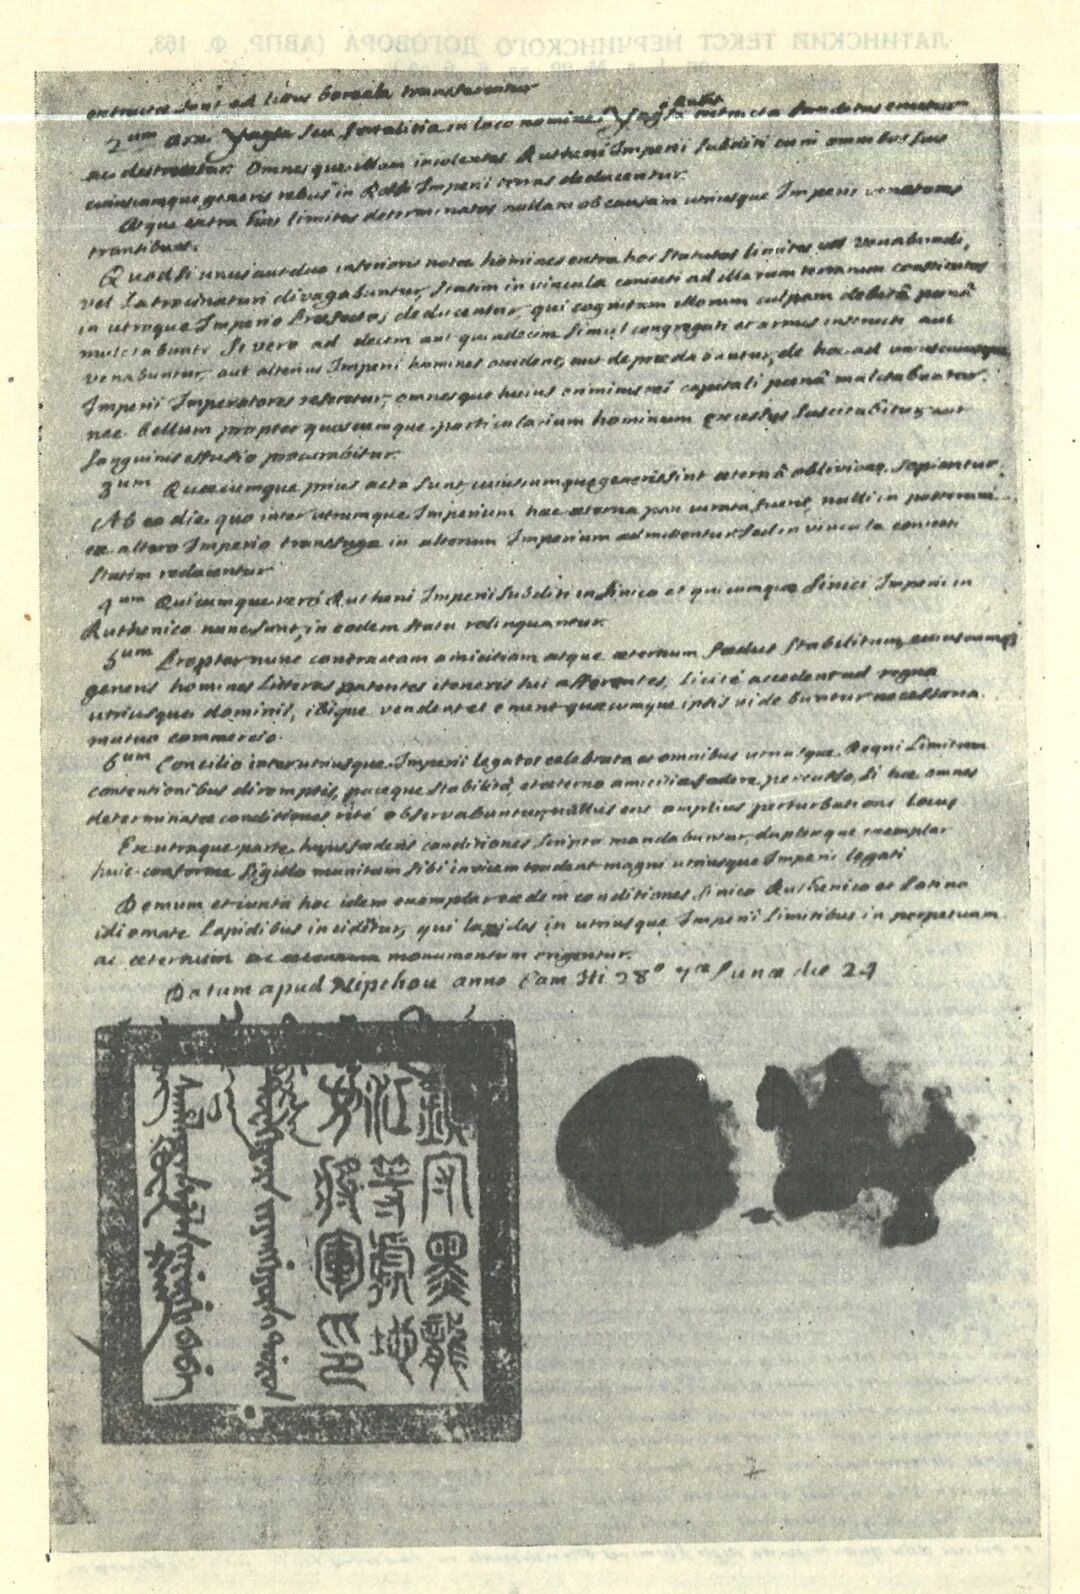 extructae sunt ad litus boreale transferentur
2um Arx Yagsa seu fortalitia in loco nomine Yagsa a Ruthis extructa funditus eruetur
ac destruetur. Omnesque illam incolentes Rutheni Imperii subditi cum omnibus suis
cuiuscumque generis rebus in Russi Imperii terras deducentur.
Atque extra hos limites determinatos nullam ob causam utriusque Imperii venatores
transibunt.
Quod si unus aut duo inferioris notae homines extra hos statutos limites vel venabundi,
vel latrocinaturi divagabuntur, statim in vincula coniecti ad illarum terrarum constitutos
in utroque Imperio Praefectos deducentur, qui cognitam illorum culpam debitâ poenâ
mulctabunt. Si vero ad decem aut quindecim simul congregati et armis instructi aut
venabuntur, aut alterius Imperii homines occident, aut depraedabuntur, de hoc ad uniuscuiusque
Imperii Imperatores referetur, omnesque huius criminis rei capitali poenâ mulctabuntur.
nec bellum propter quoscumque particularium hominum excessus suscitabitur, aut
sanguinis effusio procurabitur.
3um Quaecumque prius acta sunt, cuiuscumque generis sint aeternâ oblivione sopiantur.
Ab eo die quo inter utrumque Imperium haec aeterna pax iurata fuerit, nulli in posterum
ex altero Imperio transfugae in alterum Imperium admittentur sed in vincula coniecti
statim reducentur
4um Quicumque verò Rutheni Imperii subditi in Sinico et quicumque Sinici Imperii in
Ruthenico nunc sunt, in eodem statu relinquantur.
5um Propter nunc contractam amicitiam atque aeternum foedus stabilitum, cuiuscumque
generis homines litteras patentes iteneris sui afferentes, licitè accedent ad regna
utriusque dominii, ibique vendent et ement quaecumque ipsis videbuntur necessaria
mutuo commercio.
6um Concilio inter utriusque Imperii legatos celebrato et omnibus utriusque Regni limitum
contentionibus diremptis, paceque stabilitâ, et aeterno amicitiae foedere percusso, si hae omnes
determinatae conditiones ritè observabuntur, nullus erit amplius perturbationi locus
Ex utraque parte hujus foederis conditiones scripto mandabuntur, duplexque exemplar
huic conforme sigillo munitum sibi invicem tradent magni utriusque Imperii legati
Demum et iuxta hoc idem exemplar eaedem conditiones Sinico Ruthenico et Latino
idiomate lapidibus incidentur, qui lapides in utriusque Imperii limitibus in perpetuum
ac aeternum monumentum erigentur.
Datum apud Nipchou anno Cam Hi 28° 7ae Lunae die 24
鎮守黑龍
江等處地
方將軍印
7